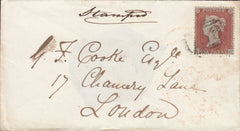 Stamford
G. F. Cooke Esqre
17 Chancery Lane
London